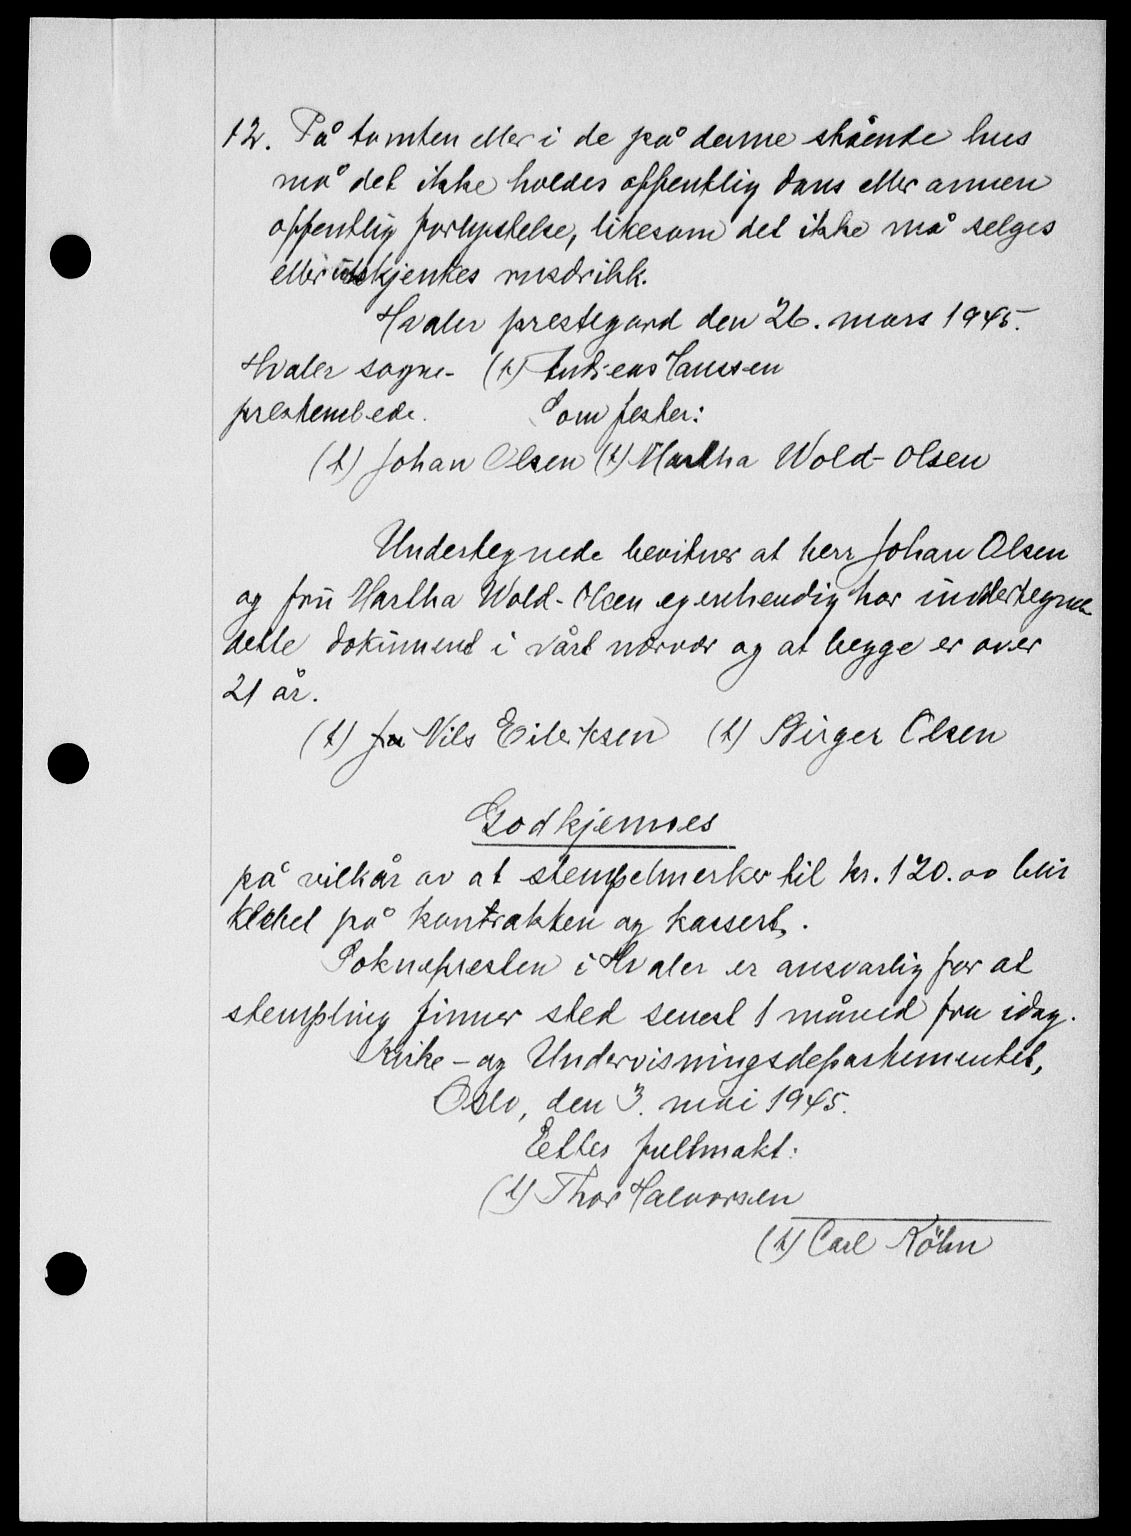 12. På tomten eller i de på denne stående hus
må det ikke holdes offentlig dans eller annen
offentlig forlystelse, likesom det ikke må selges
eller utskjenkes rusdrikk.
Hvaler prestegard den 26. mars 1945.
Hvaler sogne- (t) Andreas Hanssen
prestembede. Som fester:
(t) Johan Olsen (t) Martha Wold-Olsen
Undertegnede bevitner at herr Johan Olsen
og fru Martha Wold-Olsen egenhendig har undertegnet
dette dokument i vårt nærvær og at begge er over
21 år.
(t) Nils Eileiksen (t) Birger Olsen
Godkjennes
på vilkår av at stempelmerker til kr. 120.00 blir
klebet på kontrakten og kassert.
Soknepresten i Hvaler er ansvarlig for at
stempling finner sted senest 1 måned fra idag.
Kirke- og Undervisningsdepartementet,
Oslo, den 3. mai 1945.
Etter fullmakt:
(t) Thor Halvorsen
(t) Carl Köhn